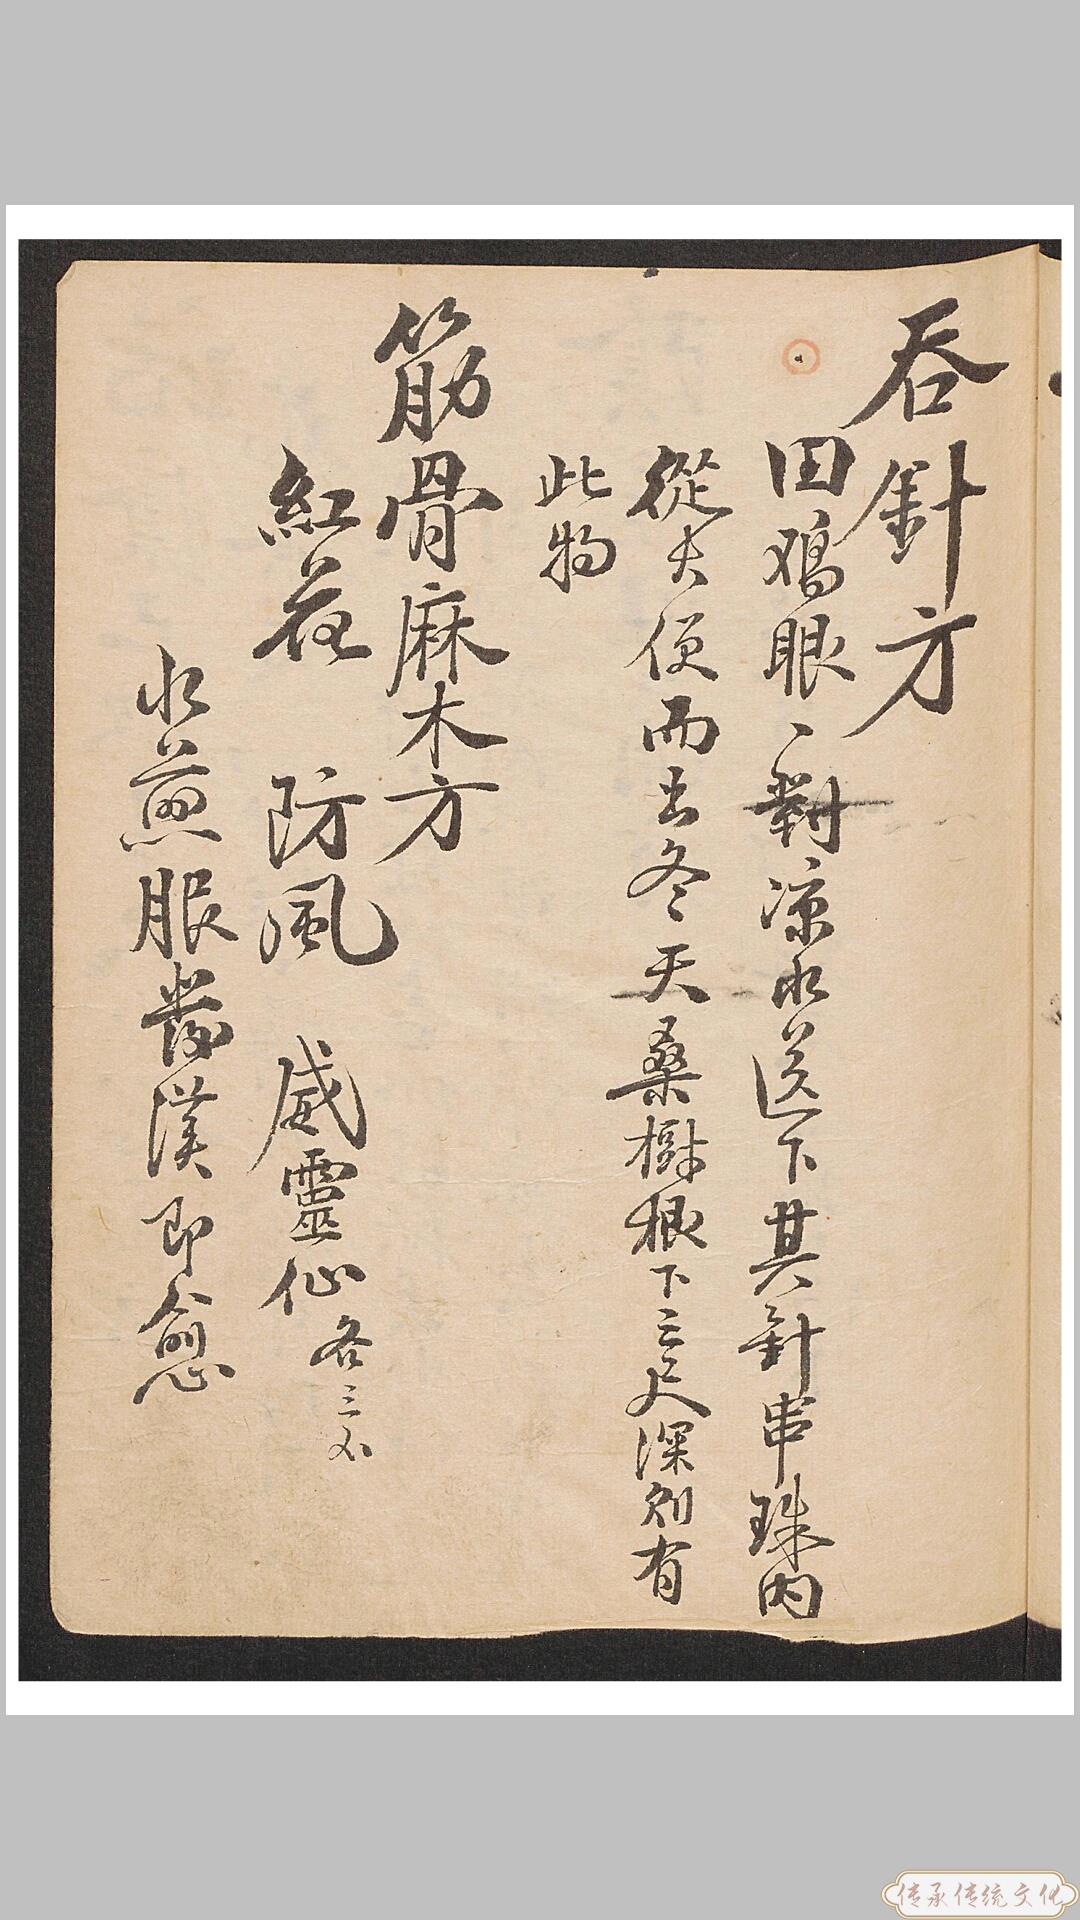 吞針方
田鷄眼一對凉水送下其針串珠內
從大便而出冬天桑樹根下三尺深則有
此物
筋骨麻木方
紅花 防風 威靈仙各三分
水煎服發漢即愈
传承传统文化